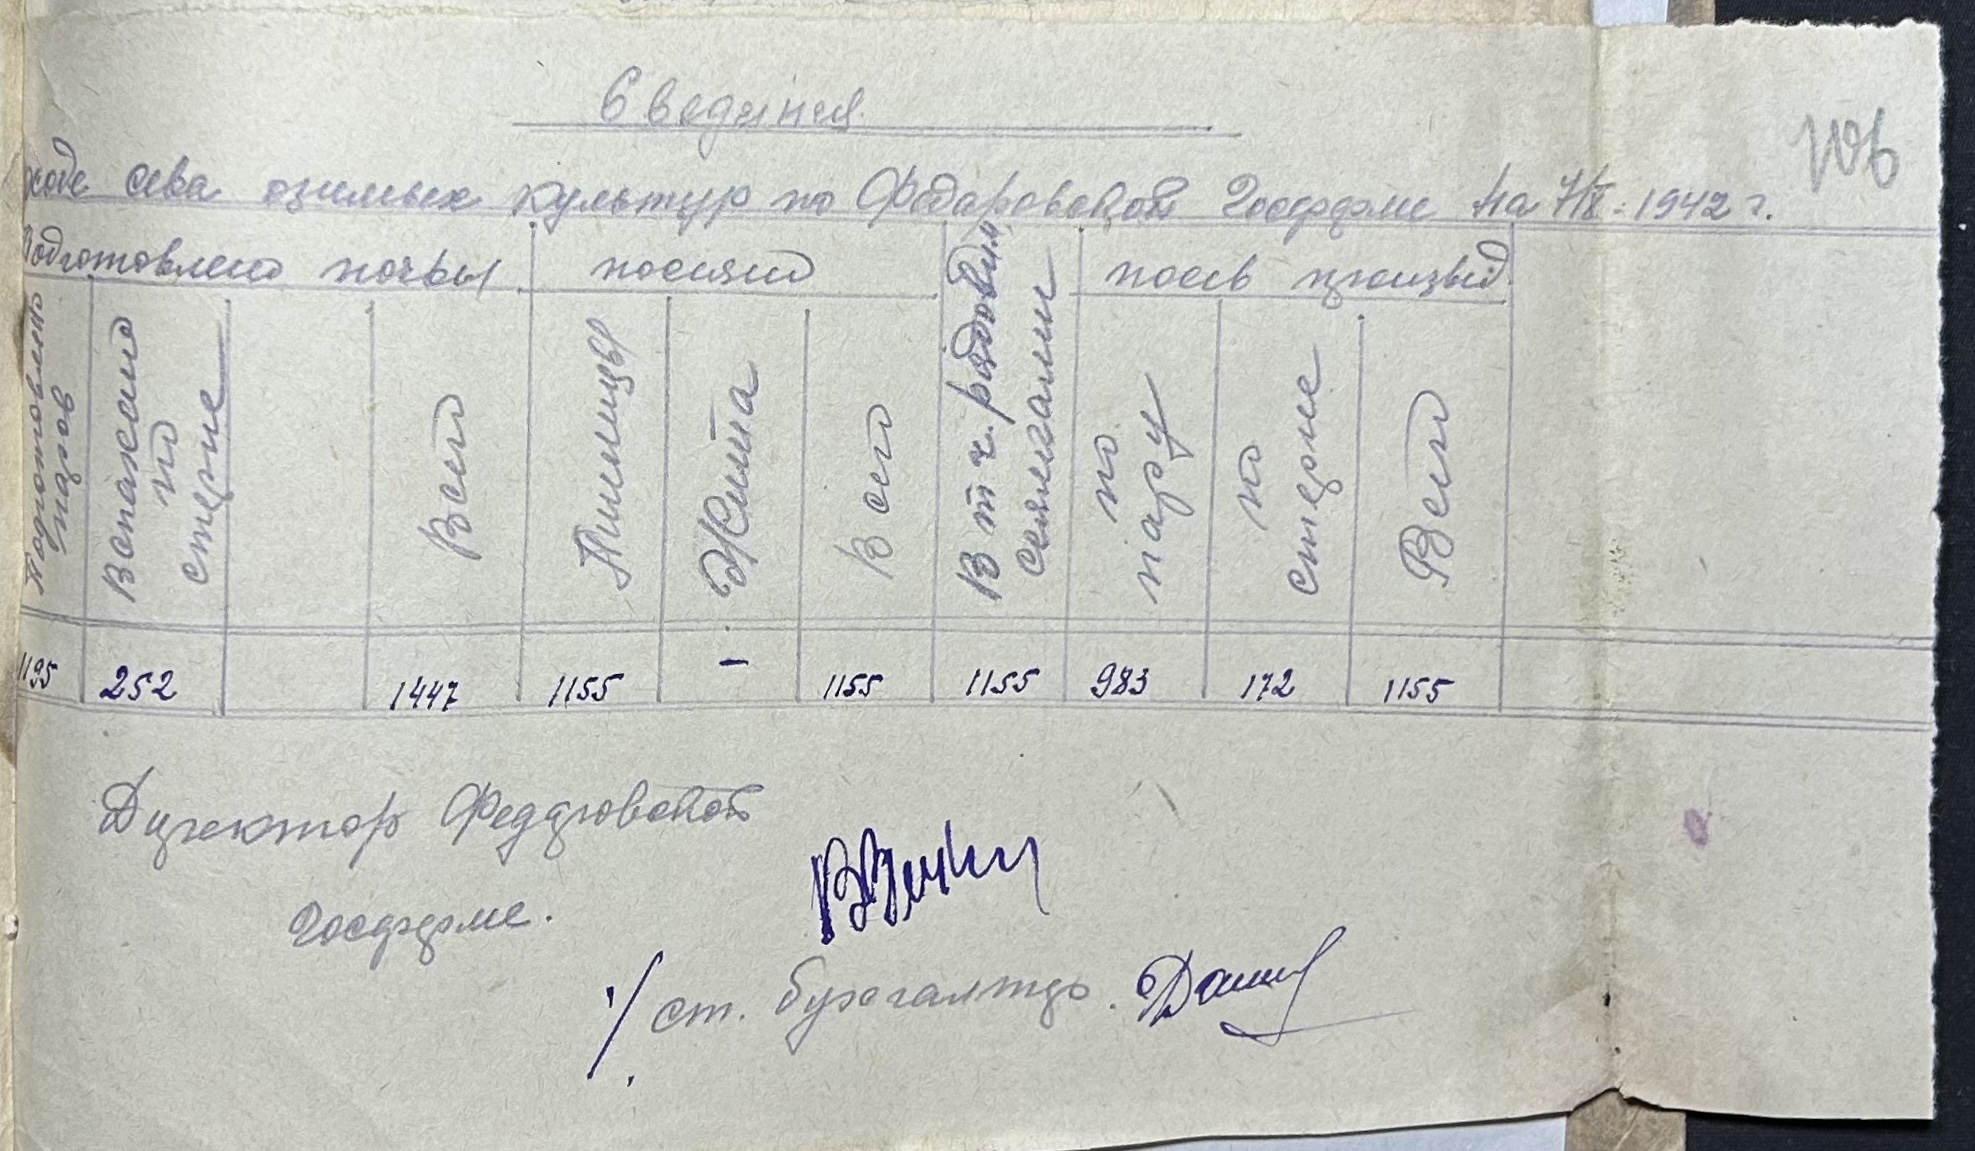 Сведения
106
ходе сева озимых культур по Федоровской Госферме на 7/X-1942 г.
Подготовлено почвы
посеяно
В т ч. рядовыми сеялками
посев произвед.
Подготовлено паров
Вспахано по стерне
Всего
Пшеницы
Жита
Всего
по пару
по стерне
Всего
1195 252 1447 1155 – 1155 1155 983 172 1155
Директор Федоровской
Госферме.
ст. бухгалтер.